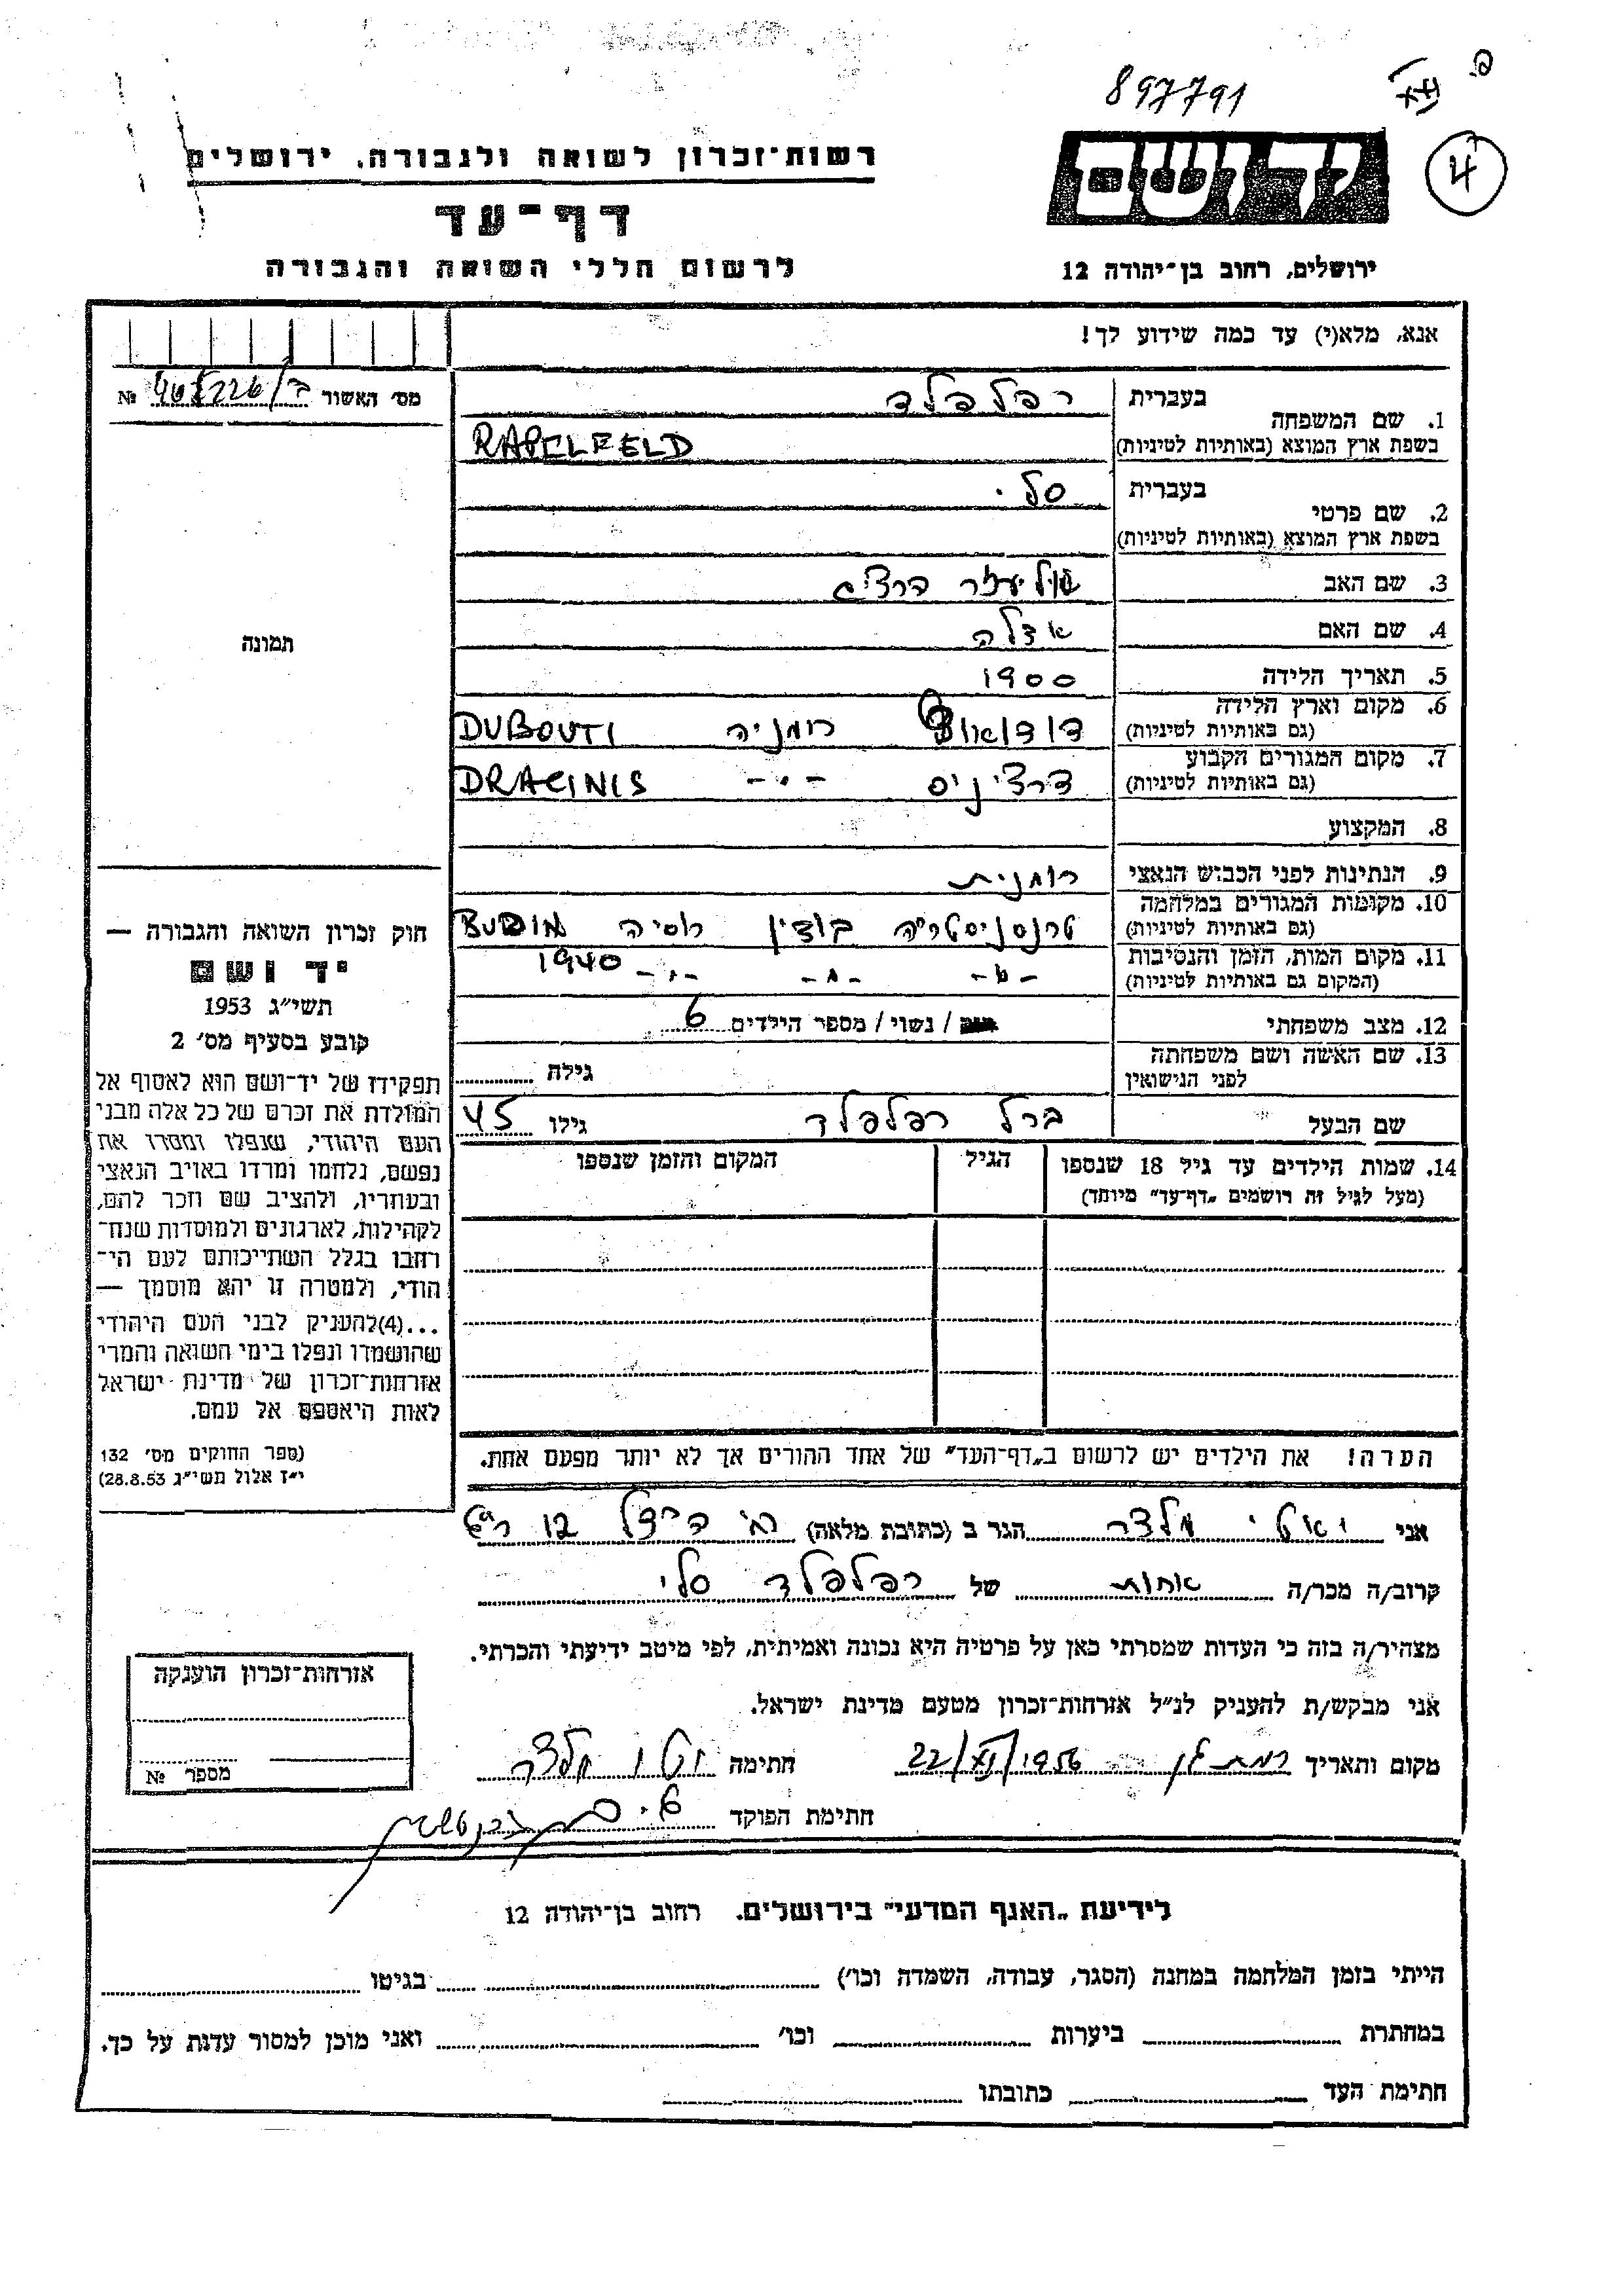 897791
רשות־זכרון לשואה ולגבורה, ירושלים
יד ושם
4
דף־עד
לרשום חללי השואה והגבורה
ירושלים, רחוב בן־יהודה 12
אנא, מלא(י) עד כמה שידוע לך!
מס׳ האשור №
1. שם המשפחה בעברית רפלפלד
בשפת ארץ המוצא (באותיות לטיניות) RAPELFELD
2. שם פרטי בעברית סלי
בשפת ארץ המוצא (באותיות לטיניות)
3. שם האב
4. שם האם אדלה
5. תאריך הלידה 1900
6. מקום וארץ הלידה רומניה DUBOUTI
(גם באותיות לטיניות)
7. מקום המגורים הקבוע דרצ׳יניס -״- DRACINIS
(גם באותיות לטיניות)
8. המקצוע
9. הנתינות לפני הכבוש הנאצי רומנית
10. מקומות המגורים במלחמה טרנסניסטריה בודין רוסיה BUDIN
(גם באותיות לטיניות)
11. מקום המות, הזמן והנסיבות -״- -״- -״- 1940
(המקום גם באותיות לטיניות)
12. מצב משפחתי / נשוי / מספר הילדים 6
13. שם האשה ושם משפחתה גילה
לפני הנישואין
שם הבעל ברל רפלפלד גילו 45
14. שמות הילדים עד גיל 18 שנספו הגיל המקום והזמן שנספו
(מעל לגיל זה רושמים „דף־עד״ מיוחד)
הערה! את הילדים יש לרשום ב„דף־העד״ של אחד ההורים אך לא יותר מפעם אחת.
תמונה
חוק זכרון השואה והגבורה —
יד ושם
תשי״ג 1953
קובע בסעיף מס׳ 2
תפקידו של יד־ושם הוא לאסוף אל
המולדת את זכרם של כל אלה מבני
העם היהודי, שנפלו ומסרו את
נפשם, נלחמו ומרדו באויב הנאצי
ובעוזריו, ולהציב שם וזכר להם,
לקהילות, לארגונים ולמוסדות שנח־
רבו בגלל השתייכותם לעם הי־
הודי, ולמטרה זו יהא מוסמך —
...(4)להעניק לבני העם היהודי
שהושמדו ונפלו בימי השואה והמרי
אזרחות־זכרון של מדינת ישראל
לאות היאספם אל עמם.
(ספר החוקים מס׳ 132
י״ז אלול תשי״ג 28.8.53)
אני מלצר הגר ב (כתובת מלאה) 12
קרוב/ה מכר/ה אחות של רפלפלד סלי
מצהיר/ה בזה כי העדות שמסרתי כאן על פרטיה היא נכונה ואמיתית, לפי מיטב ידיעתי והכרתי.
אני מבקש/ת להעניק לנ״ל אזרחות־זכרון מטעם מדינת ישראל.
מקום ותאריך רמת גן 22/XI/1956 חתימה מלצר
חתימת הפוקד
אזרחות־זכרון הוענקה
מספר №
לידיעת „האגף המדעי״ בירושלים. רחוב בן־יהודה 12
הייתי בזמן המלחמה במחנה (הסגר, עבודה, השמדה וכו׳) בגיטו
במחתרת ביערות וכו׳ ואני מוכן למסור עדות על כך.
חתימת העד כתובתו